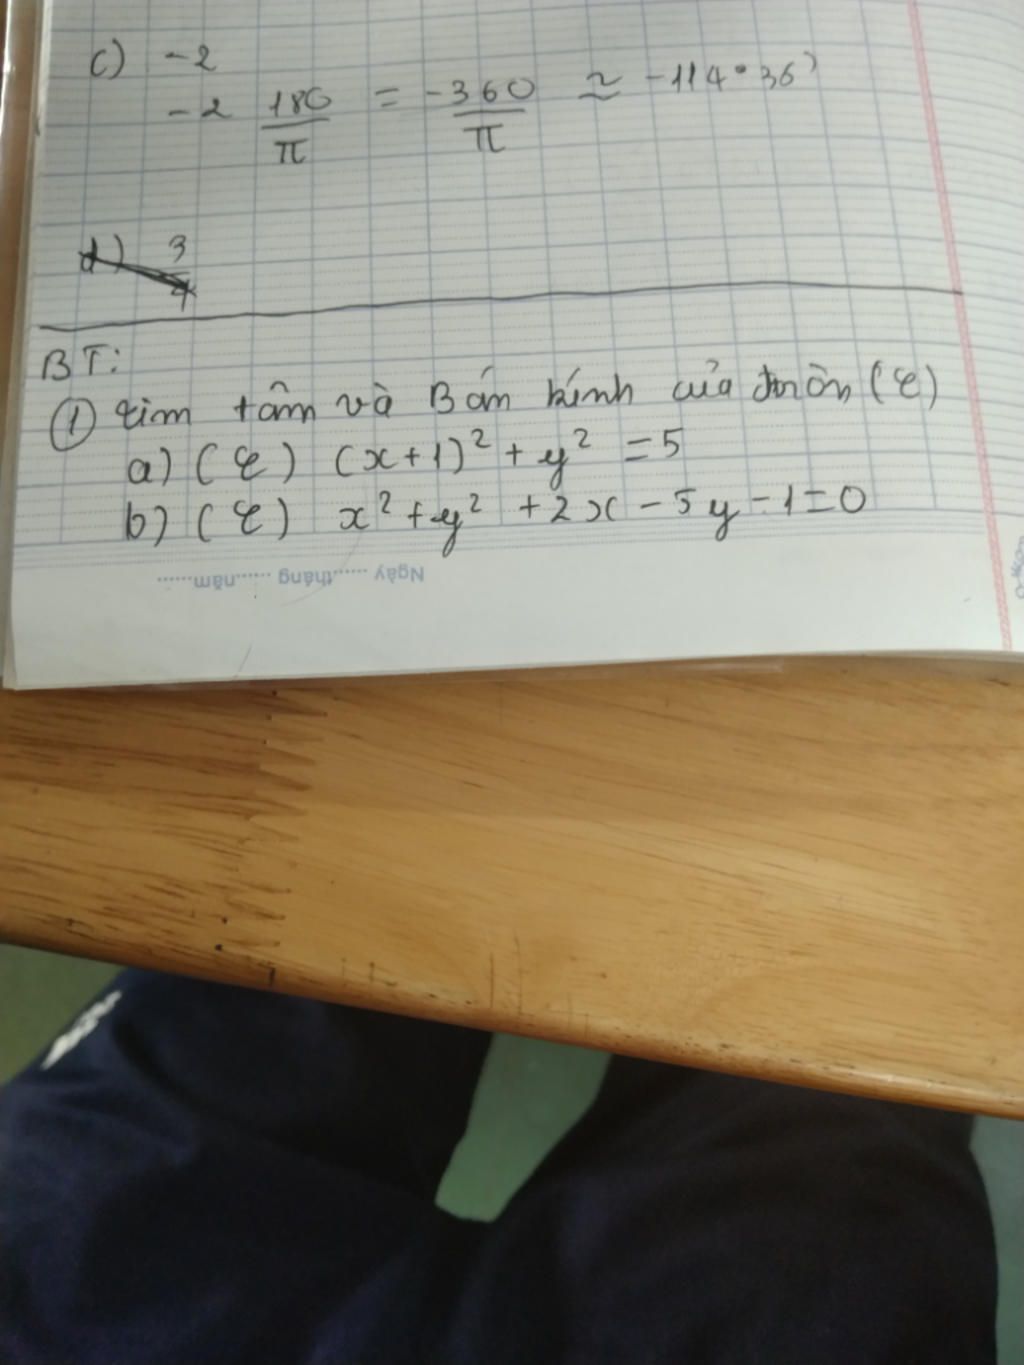 c) -2
-2 180/π = -360/π ≈ -114°36'
d) 3/4
BT:
① tìm tâm và Bán kính của tròn (C)
a) (C) (x+1)² + y² = 5
b) (C) x² + y² + 2x - 5y - 1 = 0
Ngày ......tháng ......năm......